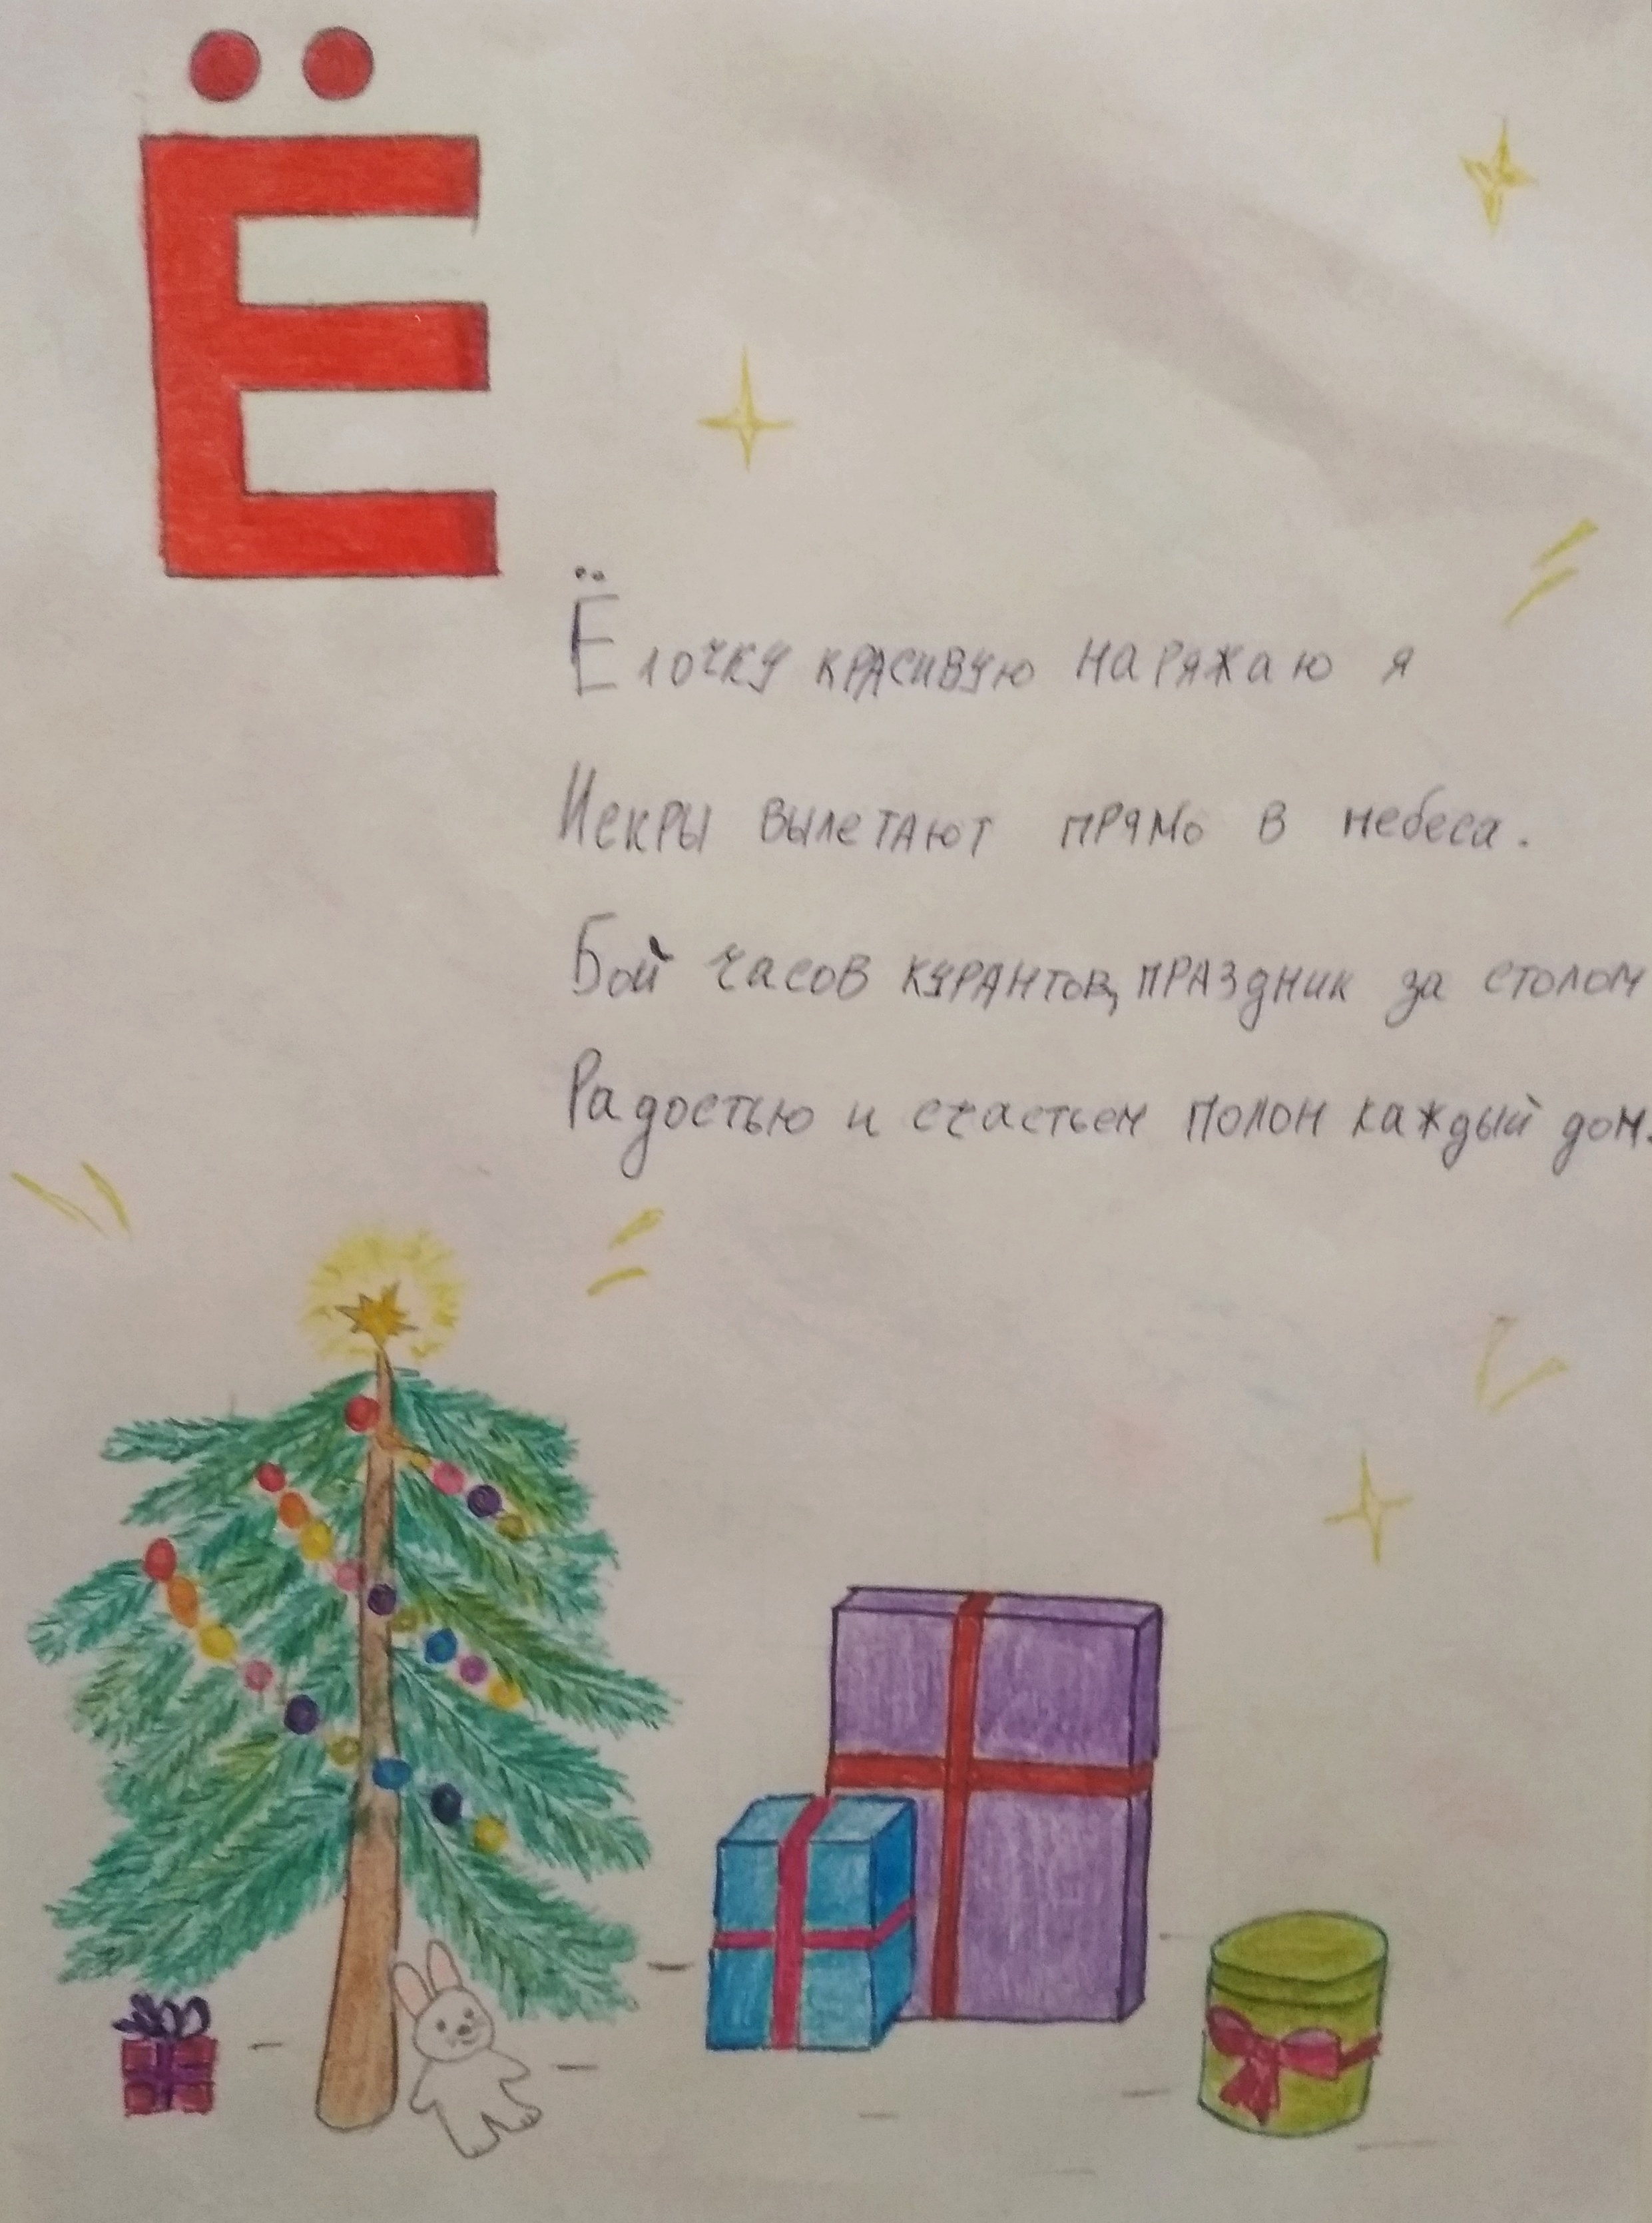 Ё
Ёлочку красивую наряжаю я
Искры вылетают прямо в небеса.
Бой часов курантов, праздник за столом
Радостью и счастьем полон каждый дом.